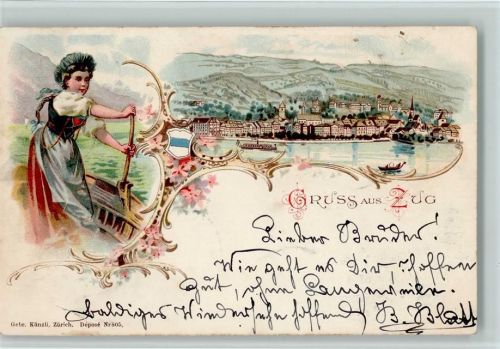 GRUSS AUS ZUG
Lieber Bruder!
Wie geht es Dir, hoffen
gut, ohne Langeweile.
baldiges Wiedersehn hoffend B. Blatt
Gebr. Künzli, Zürich, Déposé Nr 805.